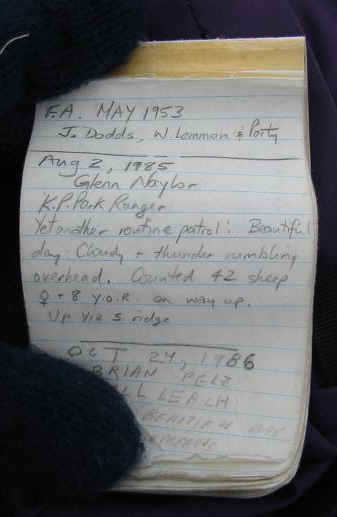 F.A. MAY 1953
J. Dodds, W. Lemmon & Party
Aug 2, 1985
Glenn Naylor
K.P. Park Ranger
Yet another routine patrol! Beautiful
day. Cloudy + thunder rumbling
overhead. Counted 42 sheep
♀ + 8 Y.O.Y. on way up.
Up via S. ridge
OCT 24, 1986
BRIAN PELZ
LL LEACH